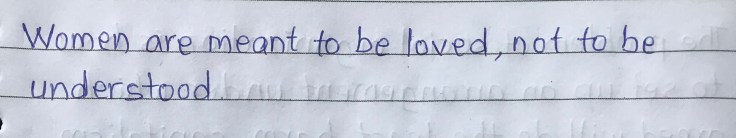 Women are meant to be loved, not to be
understood.